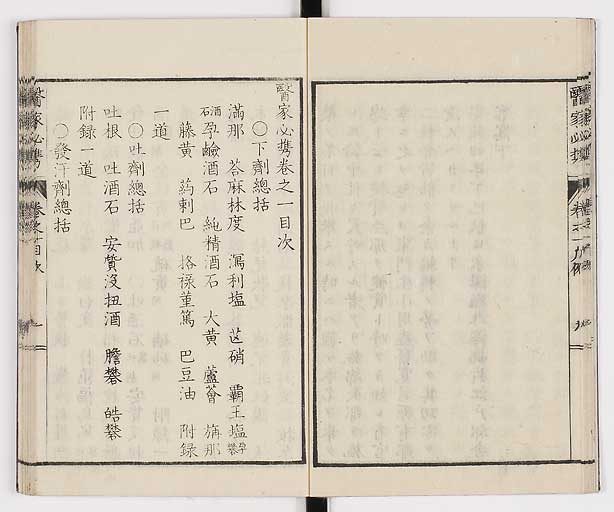 醫家必携巻之一目次
○下劑總括
滿那 荅麻林度 瀉利塩 芒硝 覇王塩
酒石 孕鹼酒石 純精酒石 大黄 蘆薈 旃那
藤黄 葯剌巴 格祿菫篤 巴豆油 附録
一道
○吐劑總括
吐根 吐酒石 安質没扭酒 膽礬 皓礬
附録一道
○發汗劑總括
醫家必携
目次
醫家必携